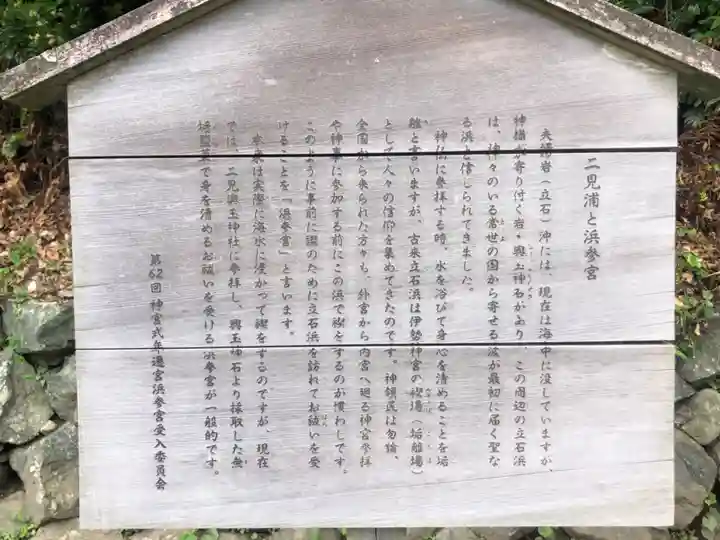 二見浦と浜参宮
夫婦岩（立石）沖には、現在は海中に没していますが、
神様が寄り付く岩・興玉神石があり、この周辺の立石浜
は、神々のいる常世の国から寄せる波が最初に届く聖な
る浜と信じられてきました。
神仏に参拝する時、水を浴びて身心を清めることを垢
離と言いますが、古来立石浜は伊勢神宮の禊場（垢離場）
として人々の信仰を集めてきたのです。神領民は勿論、
全国から来られた方々も、外宮から内宮へ廻る神宮参拝
や神事に参加する前にこの浜で禊をするのが慣わしです。
このように事前に禊のために立石浜を訪れてお祓いを受
けることを「浜参宮」と言います。
本来は実際に海水に浸かって禊をするのですが、現在
では、二見興玉神社に参拝し、興玉神石より採取した無
垢塩草で身を清めるお祓いを受ける浜参宮が一般的です。
第62回 神宮式年遷宮浜参宮受入委員会